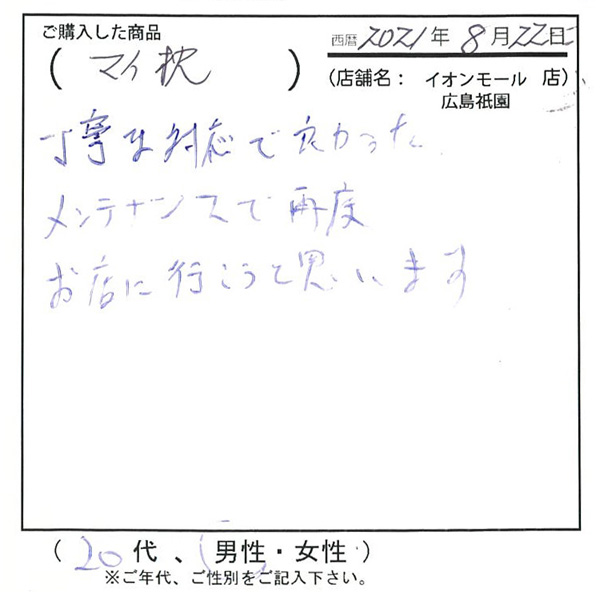 ご購入した商品
( マイ枕 )
西暦 2021年 8月22日
(店舗名: イオンモール 店)
広島祇園
丁寧な対応で良かった
メンテナンスで再度
お店に行こうと思います
( 20代 、 男性・女性 )
※ご年代、ご性別をご記入下さい。